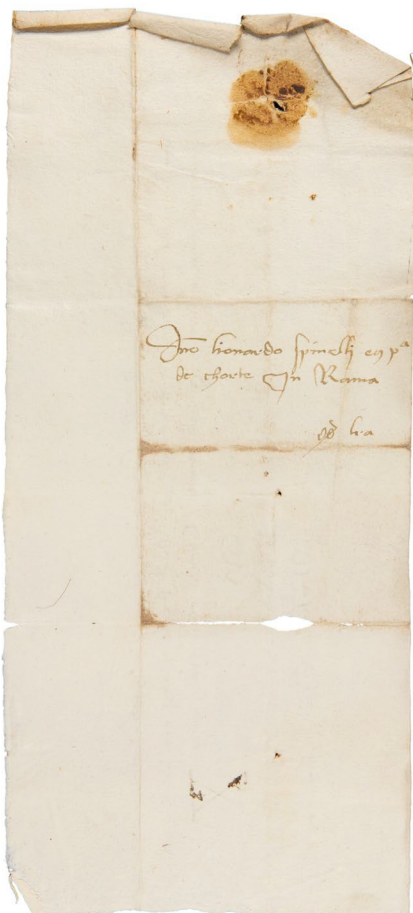 Dno lionardo spinelli eq pa
de chorte In Roma